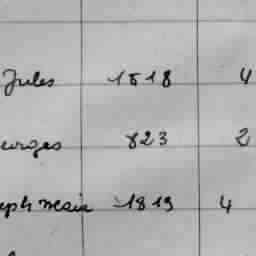 Jules 1818 4
eorges 823 2
eph mesin 1819 4